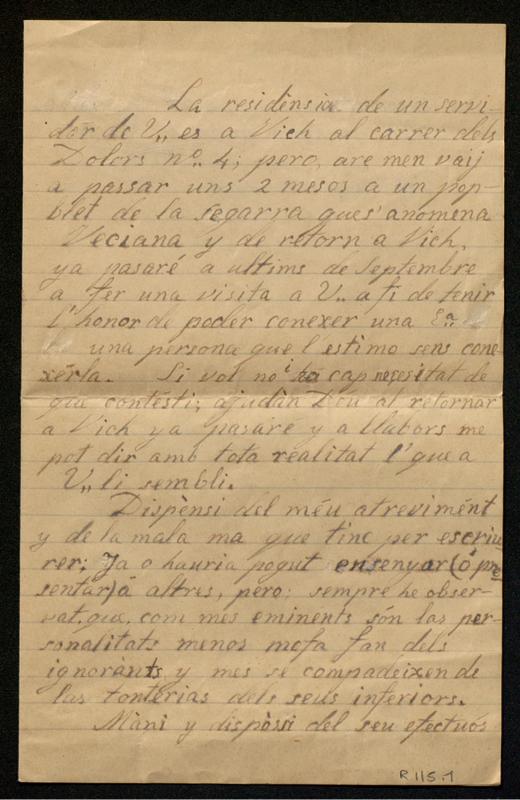 La residènsia de un servi-
dor de V,, es a Vich al carrer dels
Dolors nº. 4; pero, are men vaij
a passar uns 2 mesos a un pop-
blet de la segarra ques' anomena
Veciana y de retorn a Vich,
ya pasaré a ultims de Septembre
a fer una visita a V.. a fi de tenir
l'honor de poder conexer una
una persona que l estimo sens cone-
xérla. Si vol no i cap nesesitat de
que contésti; ajudàn Deu al retornar
a Vich ya pasaré y a llabors me
pot dir amb tota realitat l'que a
V,, li sembli.
Dispènsi del méu atrevimént
y de la mala ma que tinc per escriu-
rer; Ja o hauria pogut ensenyar (ó pre
sentar) á altres, pero; sempre he obser-
vat, que, com mes eminents són las per-
sonalitats menos mofa fan dels
ignorànts y mes se compadeixen de
las tonterias dels seus inferiors.
Màni y dispòssi del seu efectuós
R 115.1